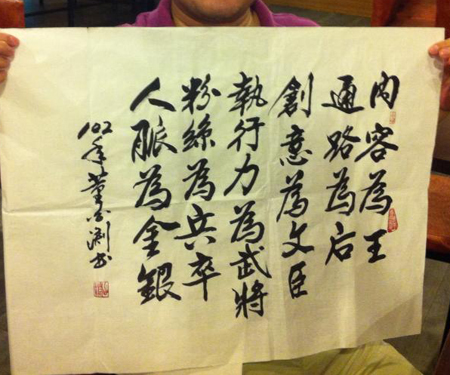 內容為王
通路為后
創意為文臣
執行力為武將
粉絲為兵卒
人脈為金銀
102年黃
書